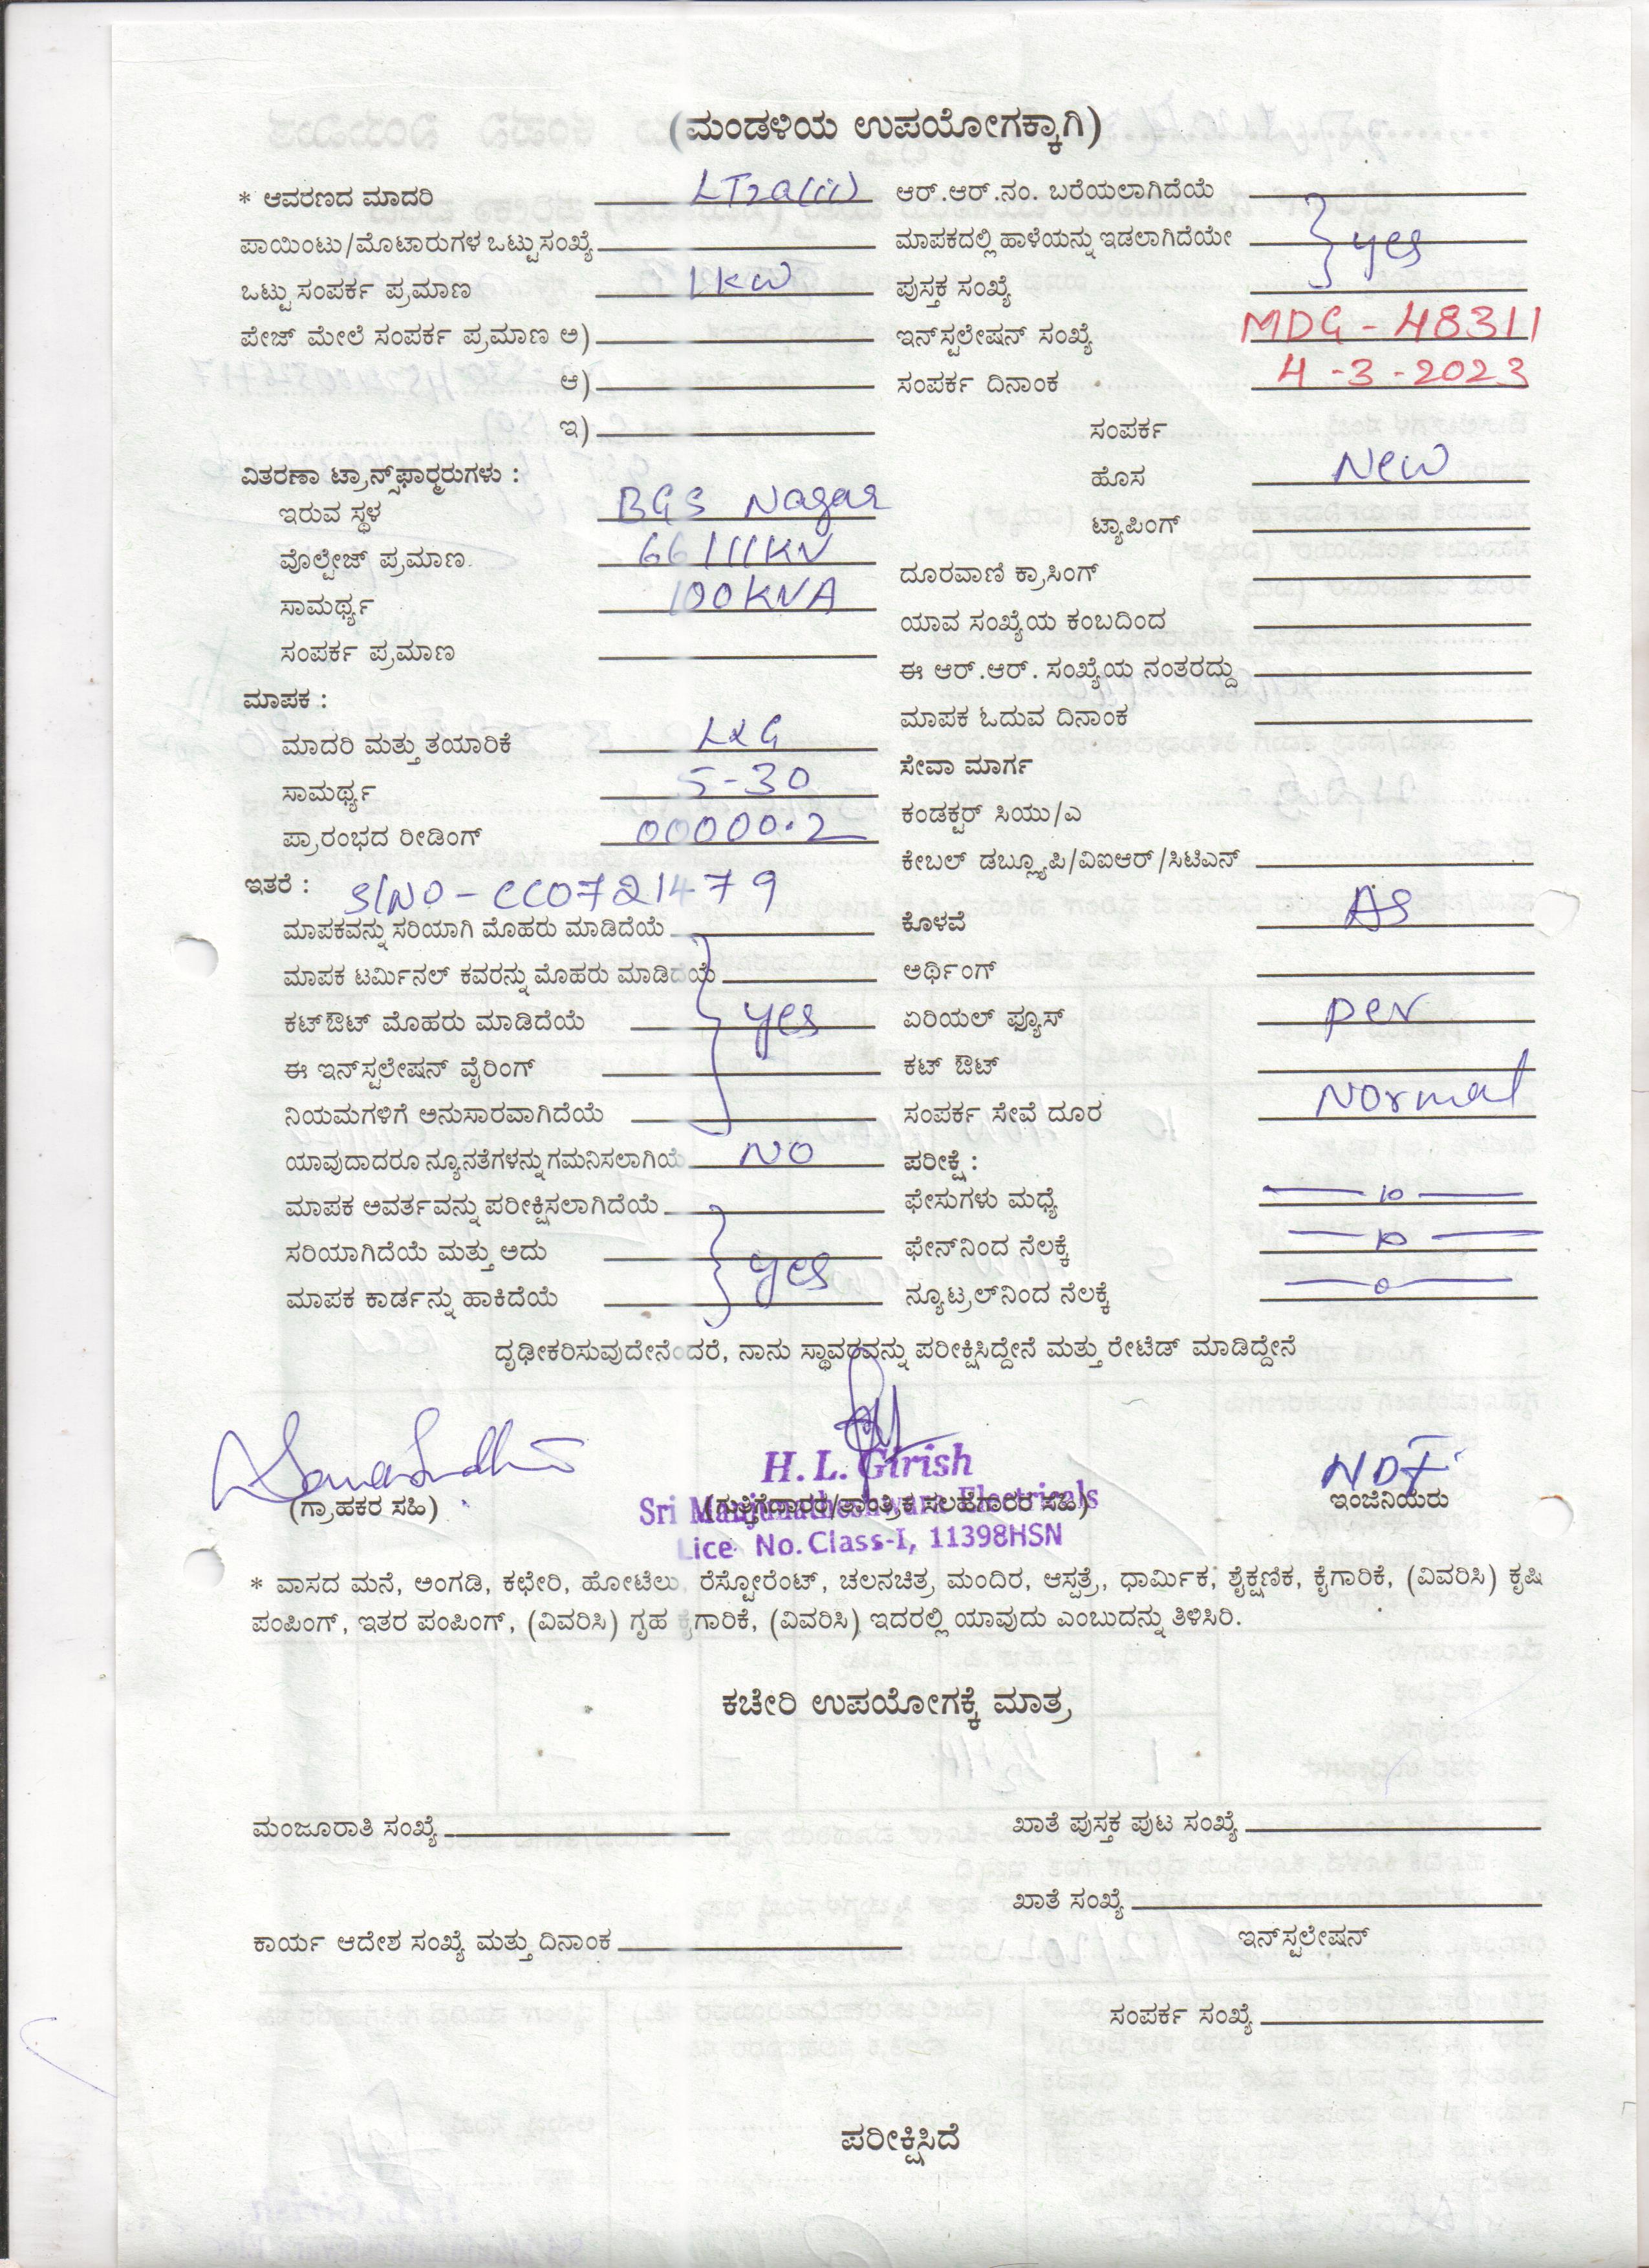 (ಮಂಡಳಿಯ ಉಪಯೋಗಕ್ಕಾಗಿ)
* ಆವರಣದ ಮಾದರಿ LT2a(ii)
ಪಾಯಿಂಟು/ಮೊಟಾರುಗಳ ಒಟ್ಟು ಸಂಖ್ಯೆ
ಒಟ್ಟು ಸಂಪರ್ಕ ಪ್ರಮಾಣ 1KW
ಪೇಜ್ ಮೇಲೆ ಸಂಪರ್ಕ ಪ್ರಮಾಣ ಅ)
ಆ)
ಇ)
ವಿತರಣಾ ಟ್ರಾನ್ಸ್‌ಫಾರ್‍ಮರುಗಳು :
ಇರುವ ಸ್ಥಳ BGS Nagar
ವೊಲ್ಟೇಜ್ ಪ್ರಮಾಣ 66/11KV
ಸಾಮರ್ಥ್ಯ 100KVA
ಸಂಪರ್ಕ ಪ್ರಮಾಣ
ಮಾಪಕ :
ಮಾದರಿ ಮತ್ತು ತಯಾರಿಕೆ L&G
ಸಾಮರ್ಥ್ಯ 5-30
ಪ್ರಾರಂಭದ ರೀಡಿಂಗ್ 00000.2
ಇತರೆ : S/NO - CC0721479
ಮಾಪಕವನ್ನು ಸರಿಯಾಗಿ ಮೊಹರು ಮಾಡಿದೆಯೆ
ಮಾಪಕ ಟರ್ಮಿನಲ್ ಕವರನ್ನು ಮೊಹರು ಮಾಡಿದೆಯೆ
ಕಟ್‌ಔಟ್ ಮೊಹರು ಮಾಡಿದೆಯೆ yes
ಈ ಇನ್‌ಸ್ಟಲೇಷನ್ ವೈರಿಂಗ್
ನಿಯಮಗಳಿಗೆ ಅನುಸಾರವಾಗಿದೆಯೆ
ಯಾವುದಾದರೂ ನ್ಯೂನತೆಗಳನ್ನು ಗಮನಿಸಲಾಗಿಯೆ NO
ಮಾಪಕ ಅವರ್ತವನ್ನು ಪರೀಕ್ಷಿಸಲಾಗಿದೆಯೆ
ಸರಿಯಾಗಿದೆಯೆ ಮತ್ತು ಅದು yes
ಮಾಪಕ ಕಾರ್ಡನ್ನು ಹಾಕಿದೆಯೆ
ಆರ್.ಆರ್.ನಂ. ಬರೆಯಲಾಗಿದೆಯೆ
ಮಾಪಕದಲ್ಲಿ ಹಾಳೆಯನ್ನು ಇಡಲಾಗಿದೆಯೇ yes
ಪುಸ್ತಕ ಸಂಖ್ಯೆ
ಇನ್‌ಸ್ಟಲೇಷನ್ ಸಂಖ್ಯೆ MDG - 48311
ಸಂಪರ್ಕ ದಿನಾಂಕ 4-3-2023
ಸಂಪರ್ಕ
ಹೊಸ New
ಟ್ಯಾಪಿಂಗ್
ದೂರವಾಣಿ ಕ್ರಾಸಿಂಗ್
ಯಾವ ಸಂಖ್ಯೆಯ ಕಂಬದಿಂದ
ಈ ಆರ್.ಆರ್. ಸಂಖ್ಯೆಯ ನಂತರದ್ದು
ಮಾಪಕ ಓದುವ ದಿನಾಂಕ
ಸೇವಾ ಮಾರ್ಗ
ಕಂಡಕ್ಟರ್ ಸಿಯು/ಎ
ಕೇಬಲ್ ಡಬ್ಲ್ಯೂಪಿ/ವಿಐಆರ್/ಸಿಟಿಎನ್
ಕೊಳವೆ AS
ಅರ್ಥಿಂಗ್
ಏರಿಯಲ್ ಫ್ಯೂಸ್ per
ಕಟ್ ಔಟ್
ಸಂಪರ್ಕ ಸೇವೆ ದೂರ Normal
ಪರೀಕ್ಷೆ :
ಫೇಸುಗಳು ಮಧ್ಯೆ — 10 —
ಫೇನ್‌ನಿಂದ ನೆಲಕ್ಕೆ — 10 —
ನ್ಯೂಟ್ರಲ್‌ನಿಂದ ನೆಲಕ್ಕೆ — 0 —
ದೃಢೀಕರಿಸುವುದೇನೆಂದರೆ, ನಾನು ಸ್ಥಾವರವನ್ನು ಪರೀಕ್ಷಿಸಿದ್ದೇನೆ ಮತ್ತು ರೇಟೆಡ್ ಮಾಡಿದ್ದೇನೆ
H. L. Girish
(ಗ್ರಾಹಕರ ಸಹಿ)
(ಗುತ್ತಿಗೆದಾರರ/ತಾಂತ್ರಿಕ ಸಲಹೆಗಾರರ ಸಹಿ)
Sri Manjunatheshwara Electricals
ಇಂಜಿನಿಯರು
Lice No. Class-I, 11398HSN
* ವಾಸದ ಮನೆ, ಅಂಗಡಿ, ಕಛೇರಿ, ಹೋಟೆಲು, ರೆಸ್ಟೋರೆಂಟ್, ಚಲನಚಿತ್ರ ಮಂದಿರ, ಆಸ್ಪತ್ರೆ, ಧಾರ್ಮಿಕ, ಶೈಕ್ಷಣಿಕ, ಕೈಗಾರಿಕೆ, (ವಿವರಿಸಿ) ಕೃಷಿ
ಪಂಪಿಂಗ್, ಇತರ ಪಂಪಿಂಗ್, (ವಿವರಿಸಿ) ಗೃಹ ಕೈಗಾರಿಕೆ, (ವಿವರಿಸಿ) ಇದರಲ್ಲಿ ಯಾವುದು ಎಂಬುದನ್ನು ತಿಳಿಸಿರಿ.
ಕಚೇರಿ ಉಪಯೋಗಕ್ಕೆ ಮಾತ್ರ
ಮಂಜೂರಾತಿ ಸಂಖ್ಯೆ
ಖಾತೆ ಪುಸ್ತಕ ಪುಟ ಸಂಖ್ಯೆ
ಖಾತೆ ಸಂಖ್ಯೆ
ಕಾರ್ಯ ಆದೇಶ ಸಂಖ್ಯೆ ಮತ್ತು ದಿನಾಂಕ
ಇನ್‌ಸ್ಟಲೇಷನ್
ಸಂಪರ್ಕ ಸಂಖ್ಯೆ
ಪರೀಕ್ಷಿಸಿದೆ